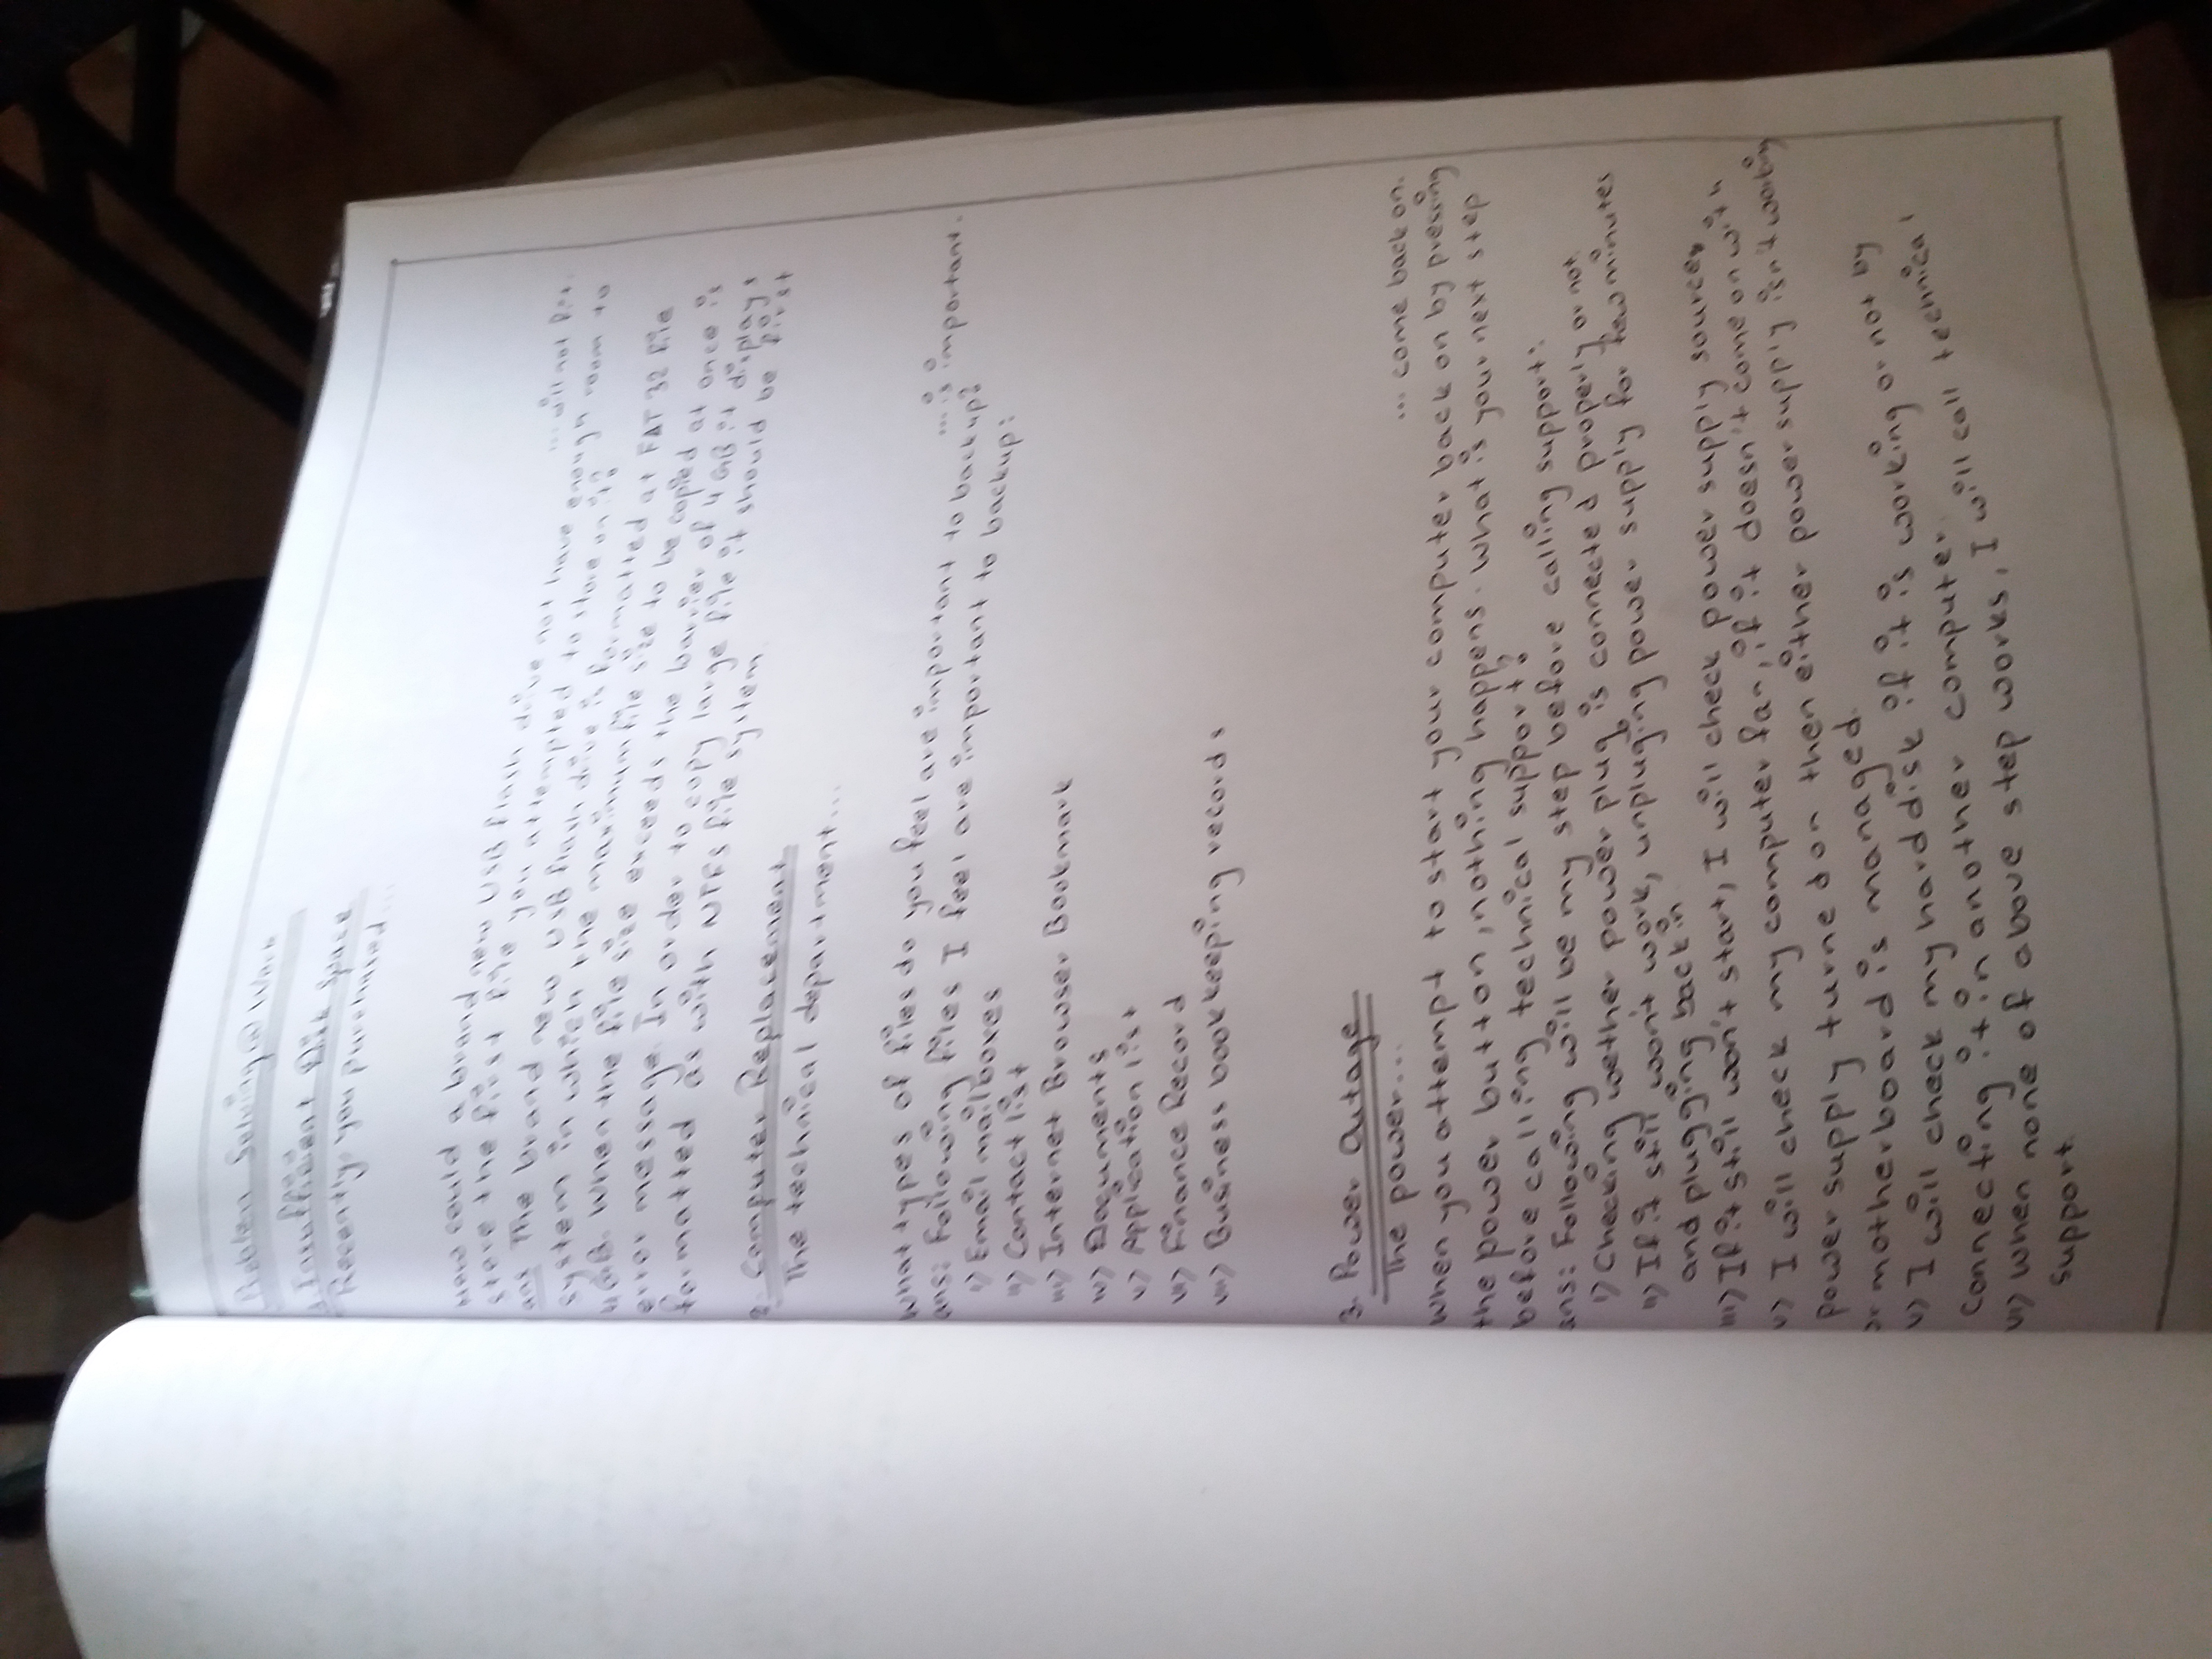 Problem Solving @ Work
1. Insufficient Disk Space
Recently, you purchased...
... will not fit.
How could a brand new USB flash drive not have enough room to
store the first file you attempted to store on it?
ans The brand new USB flash drive is formatted at FAT 32 file
system in which the maximum file size to be copied at once is
4GB. When the file size exceeds the barrier of 4GB it displays
error message. In order to copy large file it should be first
formatted as with NTFS file system
2. Computer Replacement
The technical department...
... is important.
What types of files do you feel are important to backup?
ans: Following files I feel are important to backup:
i) Email mailboxes
ii) Contact list
iii) Internet Browser Bookmark
iv) Documents
v) Application list
vi) Finance Record
vii) Business bookkeeping records
3. Power Outage
The power...
... come back on.
When you attempt to start your computer back on by pressing
the power button, nothing happens. What is your next step
before calling technical support?
ans: Following will be my step before calling support:
i) Checking wether power plug is connected properly or not.
ii) If it still won't work, unpluging power supply for few minutes
and plugging back in
iii) If it still won't start, I will check power supply source,
v) I will check my computer fan, if it doesn't come on with
power supply turned on then either power supply isn't working
or motherboard is managed.
v) I will check my hard disk if it is working or not by
connecting it in another computer.
vi) When none of above step works, I will call technical
support.